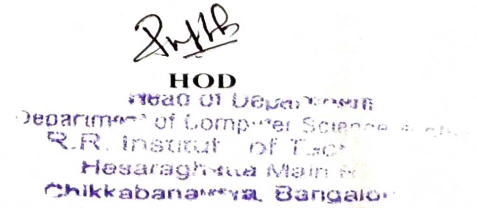 HOD
Head of Department
Department of Computer Science
R.R. Institute of
Hesaraghatta Main
Chikkabanavara, Bangalo